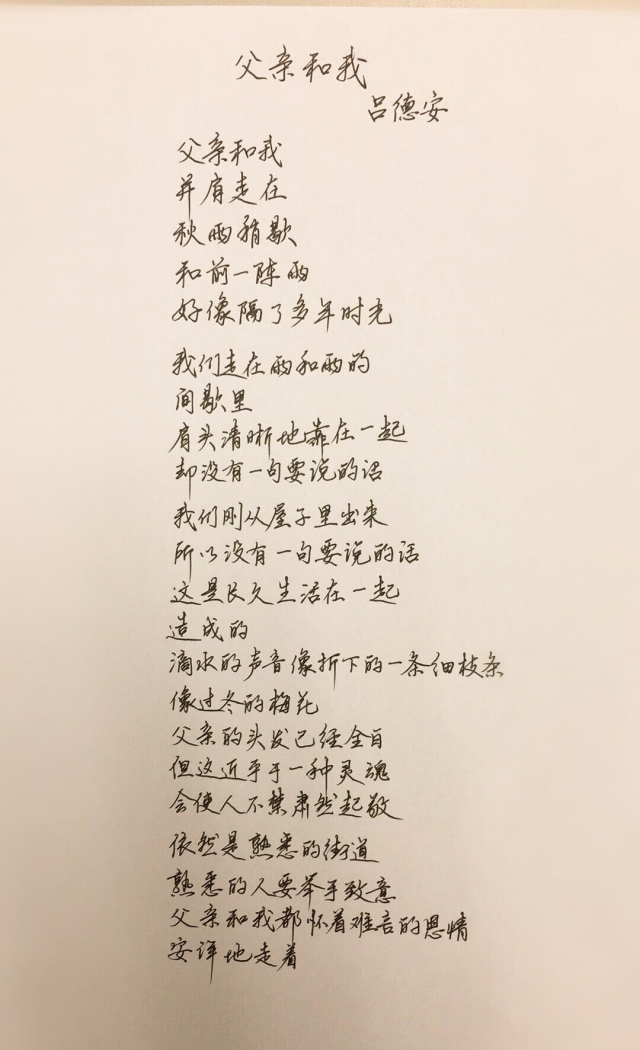 父亲和我
吕德安
父亲和我
并肩走在
秋雨稍歇
和前一阵雨
好像隔了多年时光
我们走在雨和雨的
间歇里
肩头清晰地靠在一起
却没有一句要说的话
我们刚从屋子里出来
所以没有一句要说的话
这是长久生活在一起
造成的
滴水的声音像折下的一条细枝条
像过冬的梅花
父亲的头发已经全白
但这近乎于一种灵魂
会使人不禁肃然起敬
依然是熟悉的街道
熟悉的人要举手致意
父亲和我都怀着难言的恩情
安详地走着